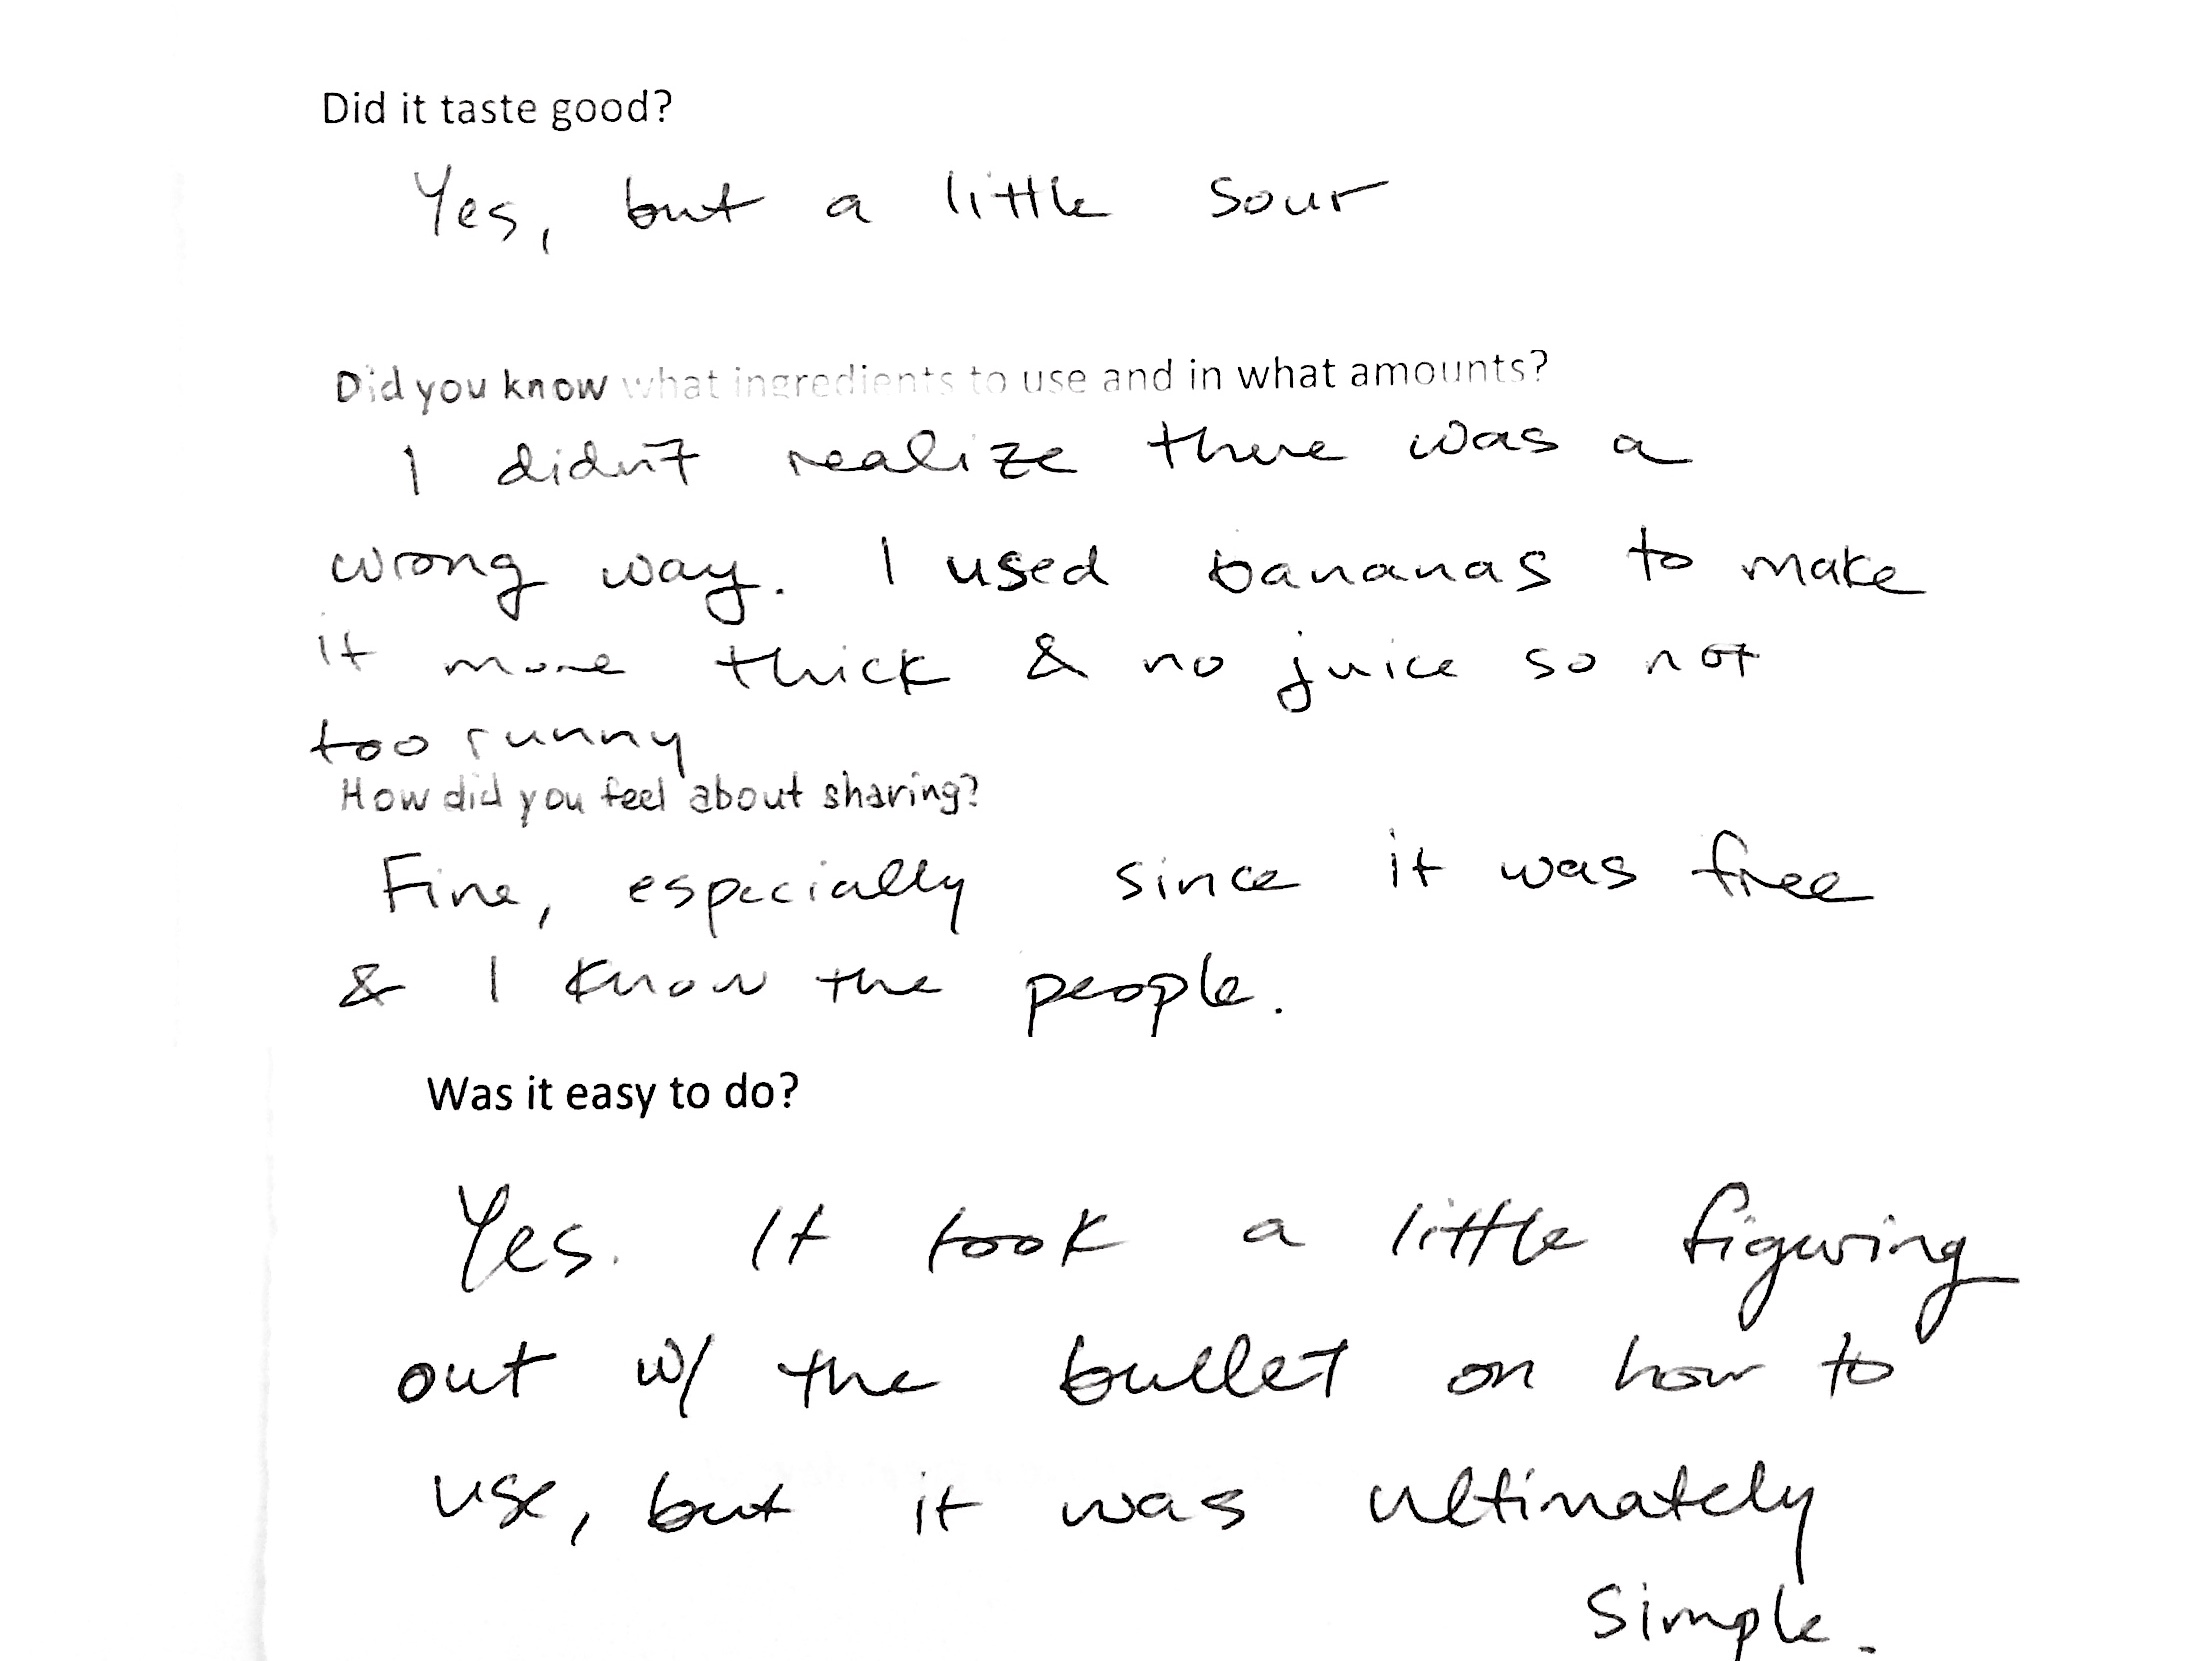 Did it taste good?
Yes, but a little sour
Did you know what ingredients to use and in what amounts?
I didn't realize there was a
wrong way. I used bananas to make
it more thick & no juice so not
too runny
How did you feel about sharing?
Fine, especially since it was free
& I know the people.
Was it easy to do?
Yes. It took a little figuring
out w/ the bullet on how to
use, but it was ultimately
simple.